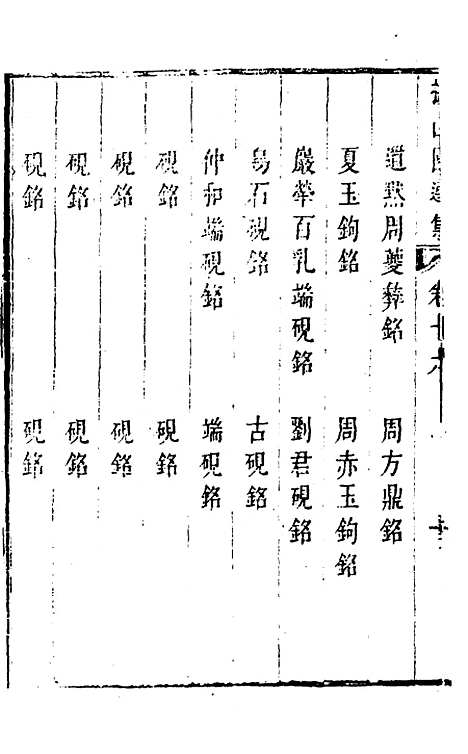 道㸃周夔彝銘　周方鼎銘
夏玉鉤銘　周赤玉鉤銘
嚴華百乳端硯銘　劉君硯銘
石硯銘　古硯銘
仲和端硯銘　端硯銘
硯銘　硯銘
硯銘　硯銘
硯銘　硯銘
硯銘　硯銘